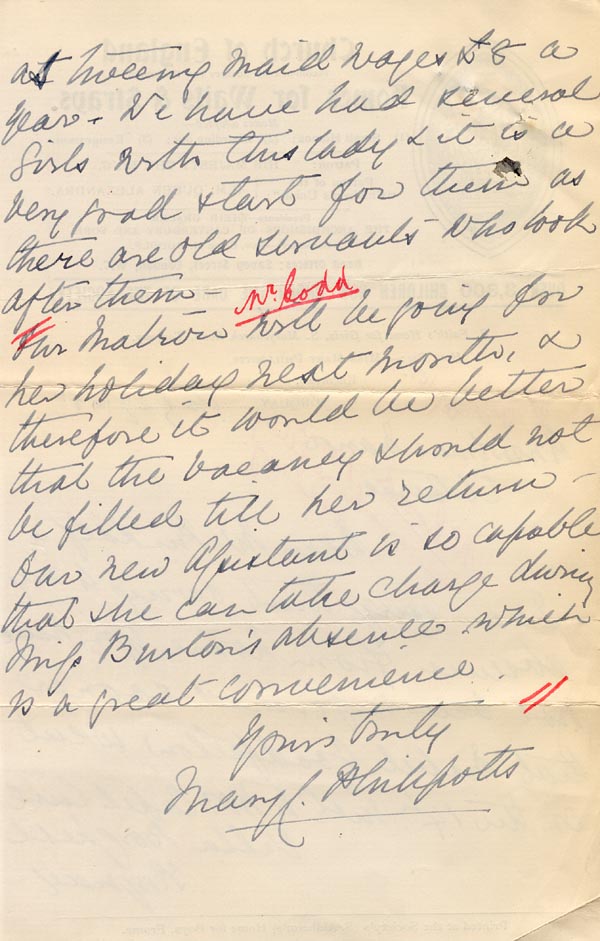 as tweeny maid wages £8 a
year - We have had several
girls with this lady & it is a
very good start for them as
there are old servants who look
after them
Mr. Codd
Our Matron will be going for
her holiday next month, &
therefore it would be better
that the vacancy should not
be filled till her return -
Our new Assistant is so capable
that she can take charge during
Miss Burton's absence which
is a great convenience.
Yours truly
Mary C. Phillpotts